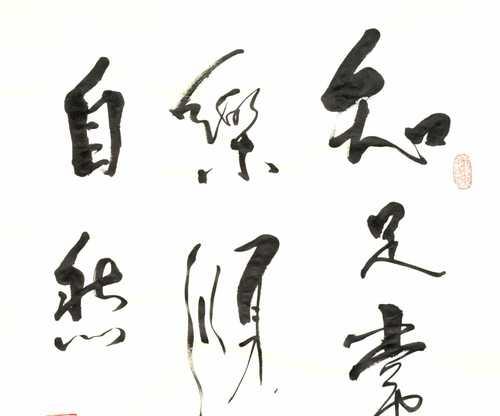 知足常
樂順
自然